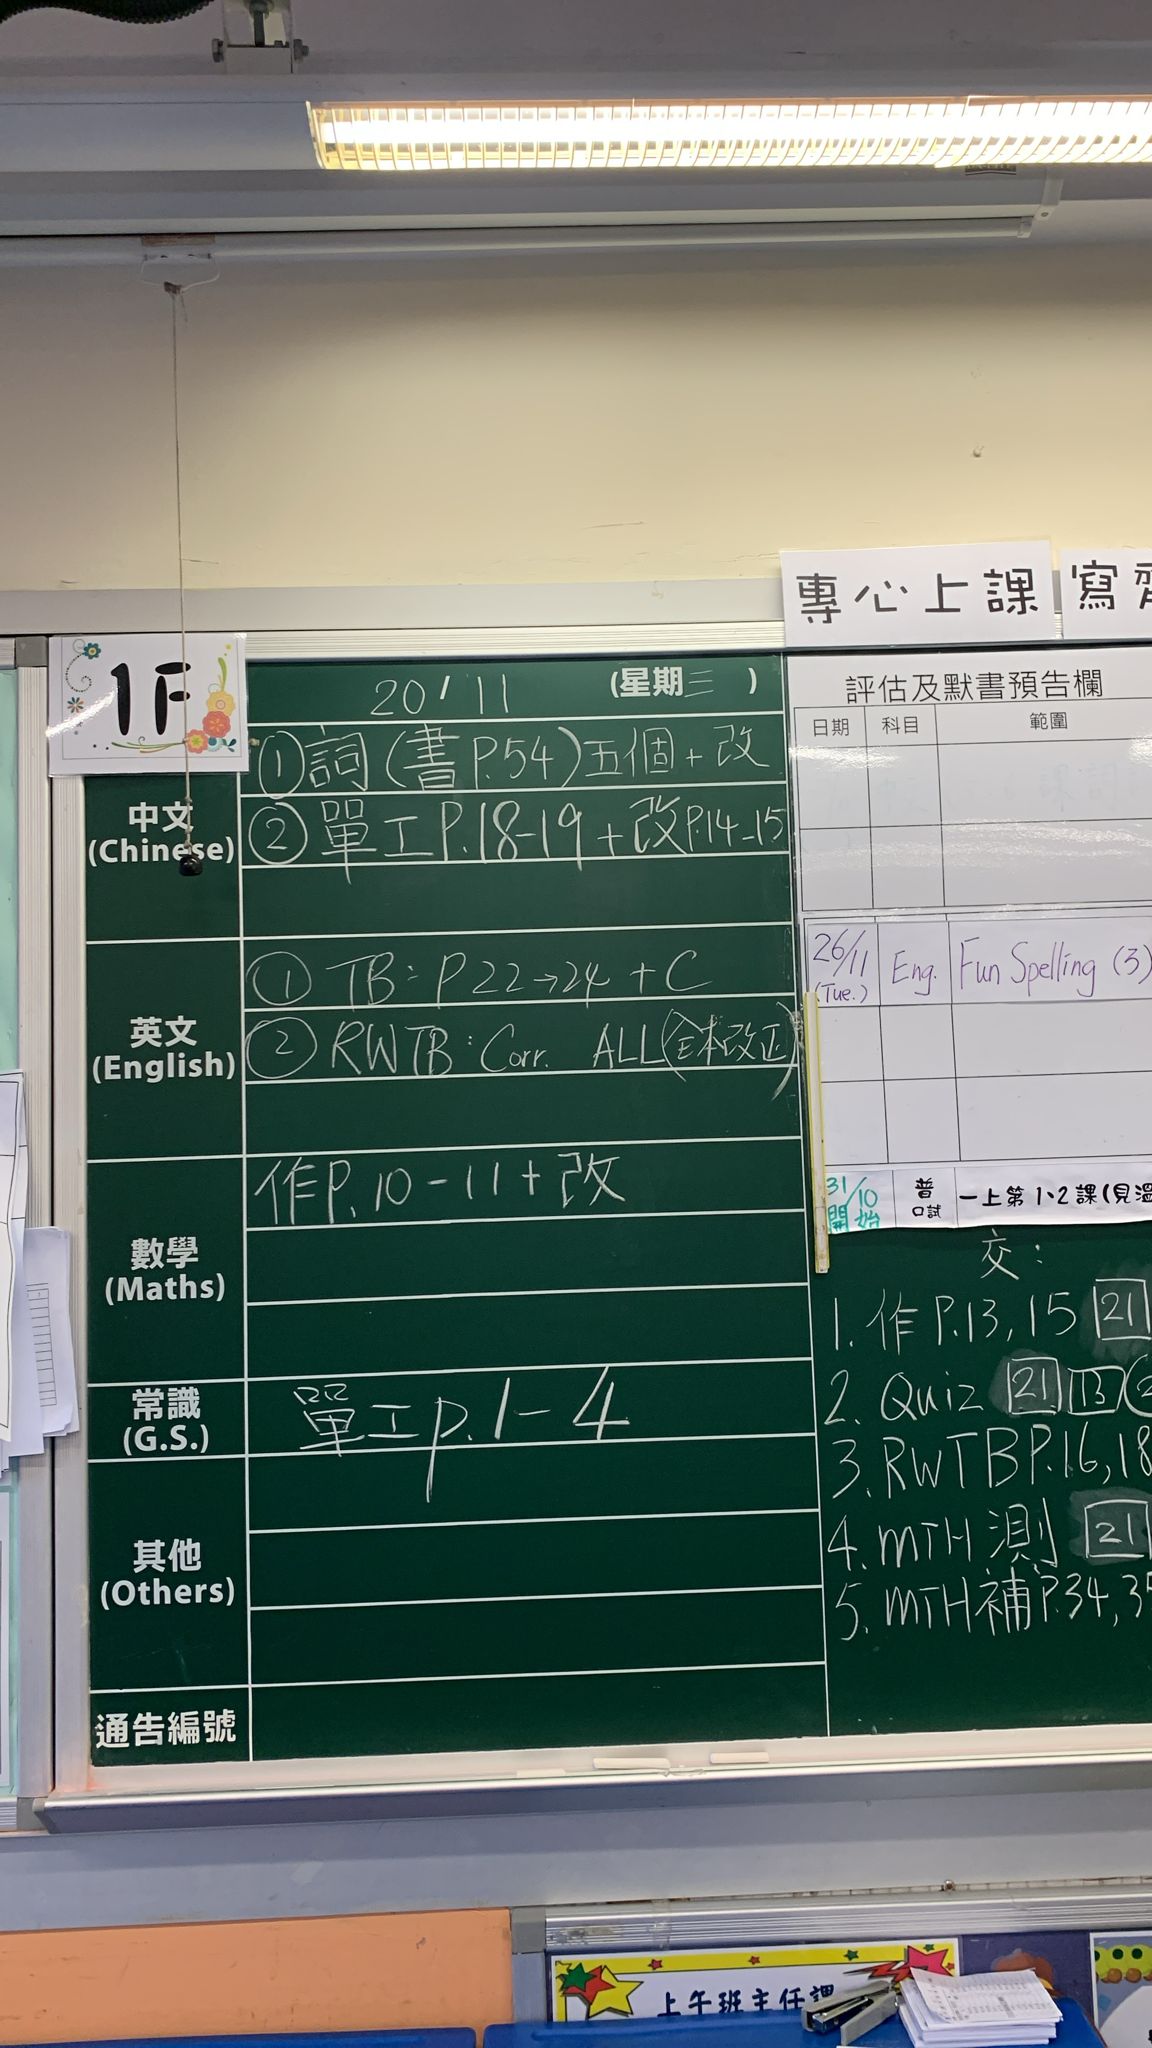 專心上課 寫
1F
20/11 (星期三)
中文
(Chinese)
①詞(書P.54)五個+改
②單工P.18-19+改P.14-15
英文
(English)
① TB: P22→24 + C
② RWTB: Corr. ALL(全本改正)
數學
(Maths)
作P.10-11+改
常識
(G.S.)
單工p.1-4
其他
(Others)
通告編號
評估及默書預告欄
日期 科目 範圍
26/11 (Tue.) Eng. Fun Spelling (3)
31/10 開始 普 口試 一上第1、2課(見溫
交:
1. 作P.13, 15 21
2. Quiz 21 13
3. RWTB P.16, 18
4. MTH 測 21
5. MTH補P.34, 35
上午班主任課